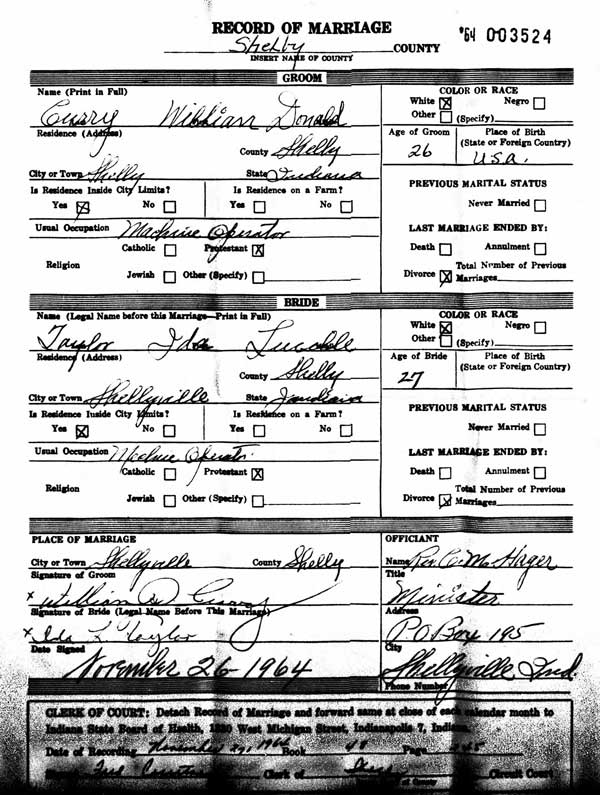 RECORD OF MARRIAGE
'64 003524
Shelby COUNTY
INSERT NAME OF COUNTY
GROOM
Name (Print in Full)
William Donald
Residence (Address)
County Shelby
City or Town Shelby State Indiana
Is Residence Inside City Limits? Is Residence on a Farm?
Yes ☒ No ☐ Yes ☐ No ☐
Usual Occupation Machine Operator
Religion
Catholic ☐ Protestant ☒
Jewish ☐ Other (Specify) ☐
COLOR OR RACE
White ☒ Negro ☐
Other ☐ (Specify)
Age of Groom Place of Birth
(State or Foreign Country)
26 U.S.A.
PREVIOUS MARITAL STATUS
Never Married ☐
LAST MARRIAGE ENDED BY:
Death ☐ Annulment ☐
Total Number of Previous
Divorce ☒ Marriages
BRIDE
Name (Legal Name before this Marriage—Print in Full)
Taylor Ida
Residency (Address)
County Shelby
City or Town Shellyville State Indiana
Is Residence Inside City Limits? Is Residence on a Farm?
Yes ☒ No ☐ Yes ☐ No ☐
Usual Occupation Machine Operator
Religion
Catholic ☐ Protestant ☒
Jewish ☐ Other (Specify) ☐
COLOR OR RACE
White ☒ Negro ☐
Other ☐ (Specify)
Age of Bride Place of Birth
(State or Foreign Country)
27
PREVIOUS MARITAL STATUS
Never Married ☐
LAST MARRIAGE ENDED BY:
Death ☐ Annulment ☐
Total Number of Previous
Divorce ☒ Marriages
PLACE OF MARRIAGE
City or Town Shellyville County Shelby
Signature of Groom
x William D
Signature of Bride (Legal Name Before This Marriage)
x Ida L Taylor
Date Signed
November 26 1964
OFFICIANT
Name Rev. C. M. Hager
Title
Minister
Address
P.O Box 195
City
Shellyville Ind.
Phone Number
CLERK OF COURT: Detach Record of Marriage and forward same at close of each calendar month to
Indiana State Board of Health, 1330 West Michigan Street, Indianapolis 7, Indiana.
Date of Recording November 27, 1964 Book 48 Page
Clerk of Circuit Court